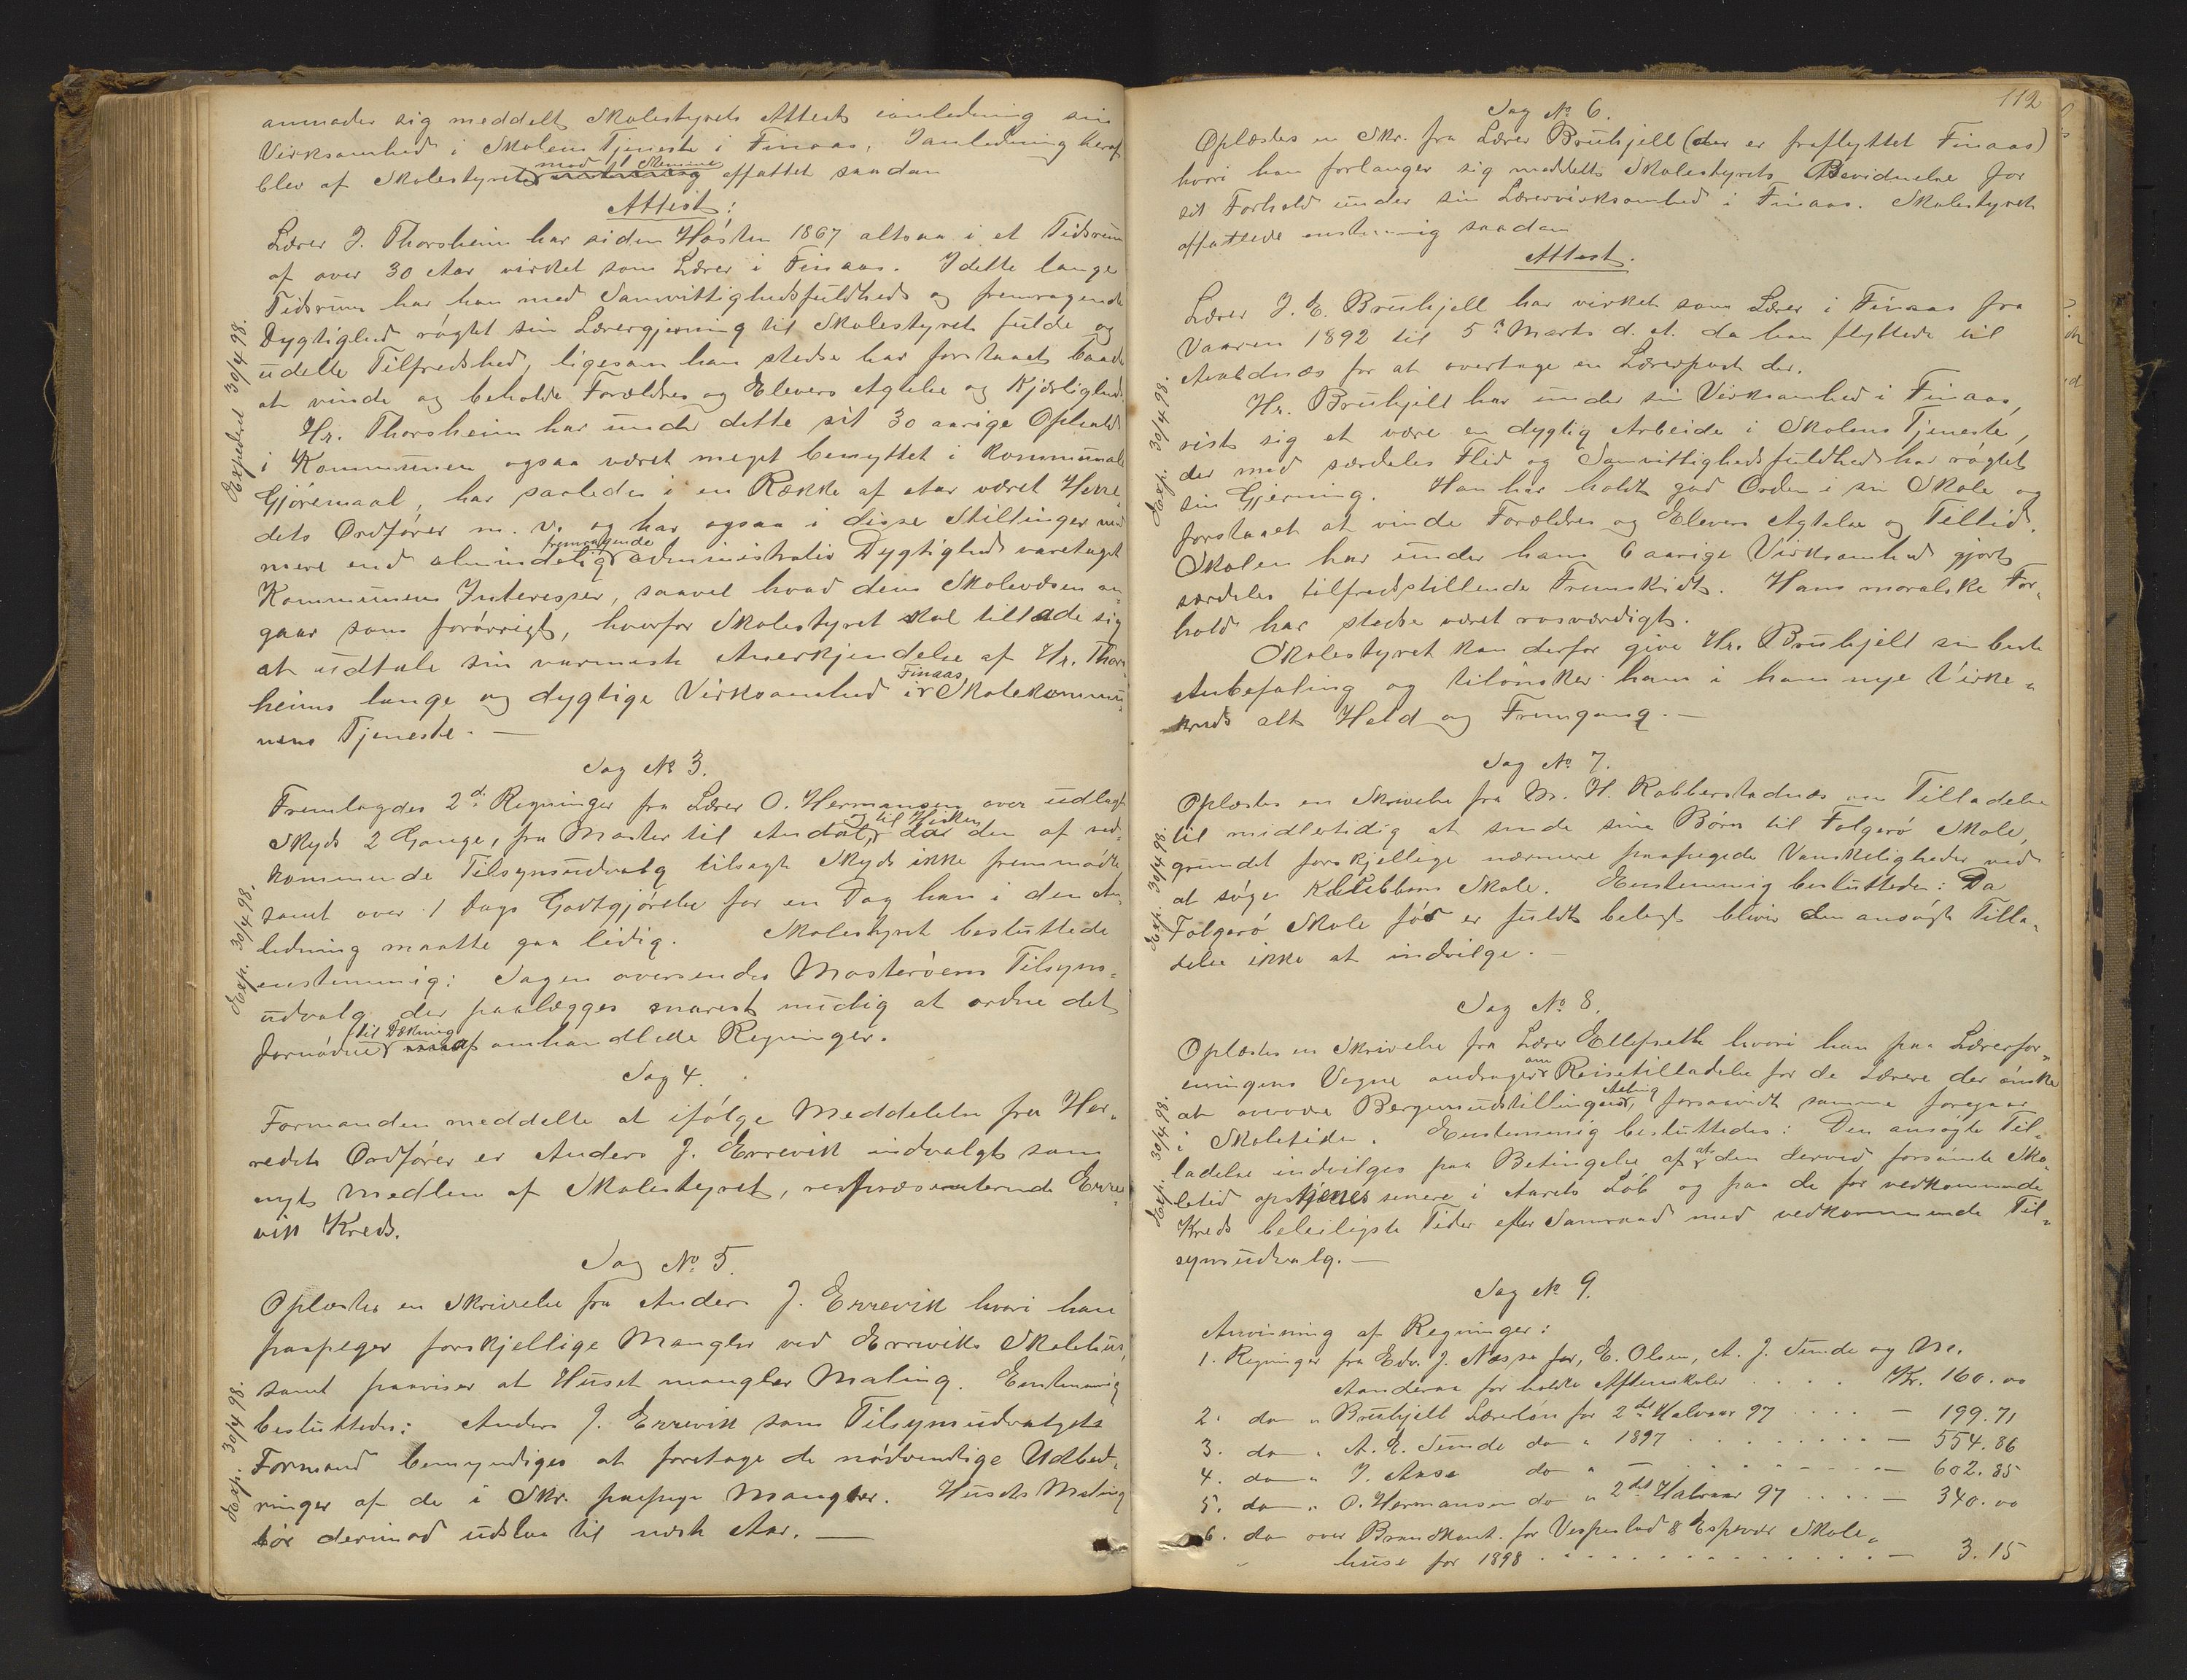 anmoder sig meddelt Skolestyrets Attest ianledning sin
Virksomhed i Skolens Tjeneste i Finaas. Ianledning heraf
blev af Skolestyret mod 1 Stemme affattet saadan
Attest:
Lærer J. Thorsheim har siden Høsten 1867 altsaa i et Tidsrum
af over 30 Aar virket som Lærer i Finaas. I dette lange
Tidsrum har han med Samvittighedsfuldhed og fremragende
Dygtighed røgtet sin Lærergjerning til Skolestyrets fulde og
udelte Tilfredshed, ligesom han stedse har forstaaet baade
at vinde og beholde Forældres og Elevers Agtelse og Kjærlighed.
Hr. Thorsheim har under dette sit 30 aarige Ophold
i Kommunen ogsaa været meget benyttet i kommunale
Gjøremaal, har saaledes i en Række af Aar været Herre-
dets Ordfører m. v. og har ogsaa i disse Stillinger med
mere end almindelig fremragende administrativ Dygtighed varetaget
Kommunens Interesser, saavel hvad dens Skolevæsen an-
gaar som forøvrigt, hvorfor Skolestyret skal tillade sig
at udtale sin varmeste Anerkjendelse af Hr. Thors-
heims lange og dygtige Virksomhed i Finaas Skolekommu-
nens Tjeneste. —
Expederet 30/4 98.
Sag No 3.
Fremlagdes 2de Regninger fra Lærer O. Hermansen over udlagt
Skyds 2 Gange, fra Moster til Andal, og til Hisken da den af ved-
kommende Tilsynsudvalg tilsagte Skyds ikke fremmødte
samt over 1 Dags Godtgjørelse for en Dag han i den An-
ledning maatte gaa ledig. Skolestyret besluttede
enstemmig: Sagen oversendes Mosterøens Tilsyns-
udvalg der paalægges snarest mulig at ordne det
fornødne til Dækning af omhandlede Regninger.
Exp. 30/4 98.
Sag 4.
Formanden meddelte at ifølge Meddelelse fra Her-
redets Ordfører er Anders J. Errevik indvalgt som
nyt Medlem af Skolestyret, repræsenterende Erre-
vik Kreds.
Sag No 5.
Oplæstes en Skrivelse fra Anders J. Errevik hvori han
paapeger forskjellige Mangler ved Erreviks Skolehus,
samt paaviser at Huset mangler Maling. Enstemmig
besluttedes: Anders J. Errevik som Tilsynsudvalgets
Formand bemyndiges at foretage de nødvendige Udbed-
ringer af de i Skr. paapege Mangler. Husets Maling
bør derimod udstaa til næste Aar. —
Exp. 30/4 98.
112
Sag No 6.
Oplæstes en Skr. fra Lærer Bruhjell (der er fraflyttet Finaas)
hvori han forlanger sig meddelt Skolestyrets Bevidnelse for
sit Forhold under sin Lærervirksomhed i Finaas. Skolestyret
affattede enstemmig saadan
Attest.
Lærer J. E. Bruhjell har virket som Lærer i Finaas fra
Vaaren 1892 til 5te Marts d. A. da han flyttede til
Avaldsnæs for at overtage en Lærerpost der.
Hr. Bruhjell har under sin Virksomhed i Finaas,
vist sig at være en dygtig Arbeide i Skolens Tjeneste,
der med særdeles Flid og Samvittighedsfuldhed har røgtet
sin Gjerning. Han har holdt god Orden i sin Skole og
forstaaet at vinde Forældres og Elevers Agtelse og Tillid.
Skolen har under hans 6 aarige Virksomhed gjort
særdeles tilfredsstillende Fremskridt. Hans moralske For-
hold har stedse været rosværdigt.
Skolestyret kan derfor give Hr. Bruhjell sin beste
Anbefaling og tilønsker ham i hans nye Virke-
kreds alt Held og Fremgang. —
Exp. 30/4 98.
Sag No 7.
Oplæstes en Skrivelse fra M. H. Robberstadnæs om Tilladelse
til midlertidig at sende sine Børn til Folgerø Skole,
grundet forskjellige nærmere paapegede Vanskeligheder ved
at søge Klubbens Skole. Enstemmig besluttedes: Da
Folgerø Skole før er fuldt belagt bliver den ansøgte Tilla-
delse ikke at indvilge. —
Exp. 30/4 98.
Sag No 8.
Oplæstes en Skrivelse fra Lærer Ellefseth hvori han paa Lærerfor-
eningens Vegne andrager om Reisetilladelse for de Lærere der ønske
at overvære Bergensudstillingens Aabning, forsaavidt samme foregaar
i Skoletiden. Enstemmig besluttedes: Den ansøgte Til-
ladelse indvilges paa Betingelse af at den derved forsømte Sko-
letid opstjenes senere i Aarets Løb og paa de for vedkommende
Kreds beleiligste Tider efter Samraad med vedkommende Til-
synsudvalg. —
Exp. 30/4 98.
Sag No 9.
Anvisning af Regninger:
1. Regninger fra Edv. J. Næsse for, E. Olsen, A. J. Sunde og M.
Aanderaa for holdte Aftenskoler . . . . Kr. 160.00
2. do " Bruhjell Lærerløn for 2det Halvaar 97 . . . . — 199.71
3. do " A. E. Sunde do " 1897 . . . . . . . . — 554.86
4. do " J. Aase do " — . . . . . . . — 602.85
5. do " O. Hermansen do " 2det Halvaar 97 . . . . — 340.00
6. do over Brandkont. for Vespestad & Espevær Skole-
huse for 1898 . . . . . . . . . . . . . — 3.15